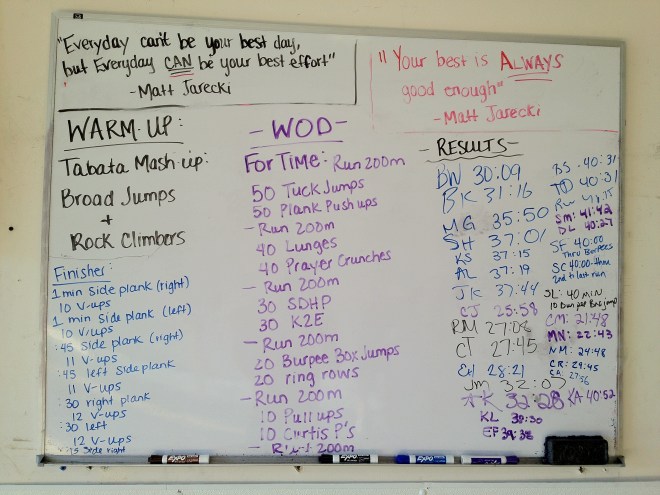 "Everyday can't be your best day,
but Everyday CAN be your best effort"
- Matt Jarecki
"Your best is ALWAYS
good enough"
- Matt Jarecki
WARM-UP:
Tabata Mash-up:
Broad Jumps
+
Rock Climbers
Finisher:
1 min Side plank (right)
10 V-ups
1 min Side plank (left)
10 V-ups
:45 Side plank (right)
11 V-ups
:45 left Side plank
11 V-ups
:30 right plank
12 V-ups
:30 left
12 V-ups
:15 Side right
- WOD -
For Time: Run 200m
50 Tuck Jumps
50 Plank Push ups
- Run 200m
40 Lunges
40 Prayer Crunches
- Run 200m
30 SDHP
30 K2E
- Run 200m
20 Burpee Box Jumps
20 ring rows
- Run 200m
10 Pull ups
10 Curtis P's
- Run 200m
- RESULTS -
BW 30:09
BK 31:16
MG 35:50
SH 37:01
KS 37:15
AL 37:19
JK 37:44
CJ 25:58
RM 27:02
CT 27:45
EH 28:21
JM 32:07
AK 32:28
KL 38:30
EF 39:38
BS - 40:31
TD 40:31
SM: 41:42
DL 40:27
SF 40:00
Thru Burpees
SC 40:00 - thru
2nd to last run
SL: 40 MIN
10 Burp Box jump
CM: 21:48
MN: 22:43
NM: 24:48
CR: 29:45
CA: 27:56
KA 40:52
EXPO
EXPO
EXPO
EXPO